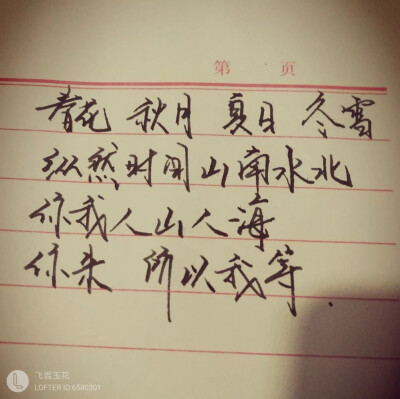 第 页
春花 秋月 夏日 冬雪
纵然时间山南水北
你我人山人海
你来 所以我等.
飞雲玉花
LOFTER ID:6580301